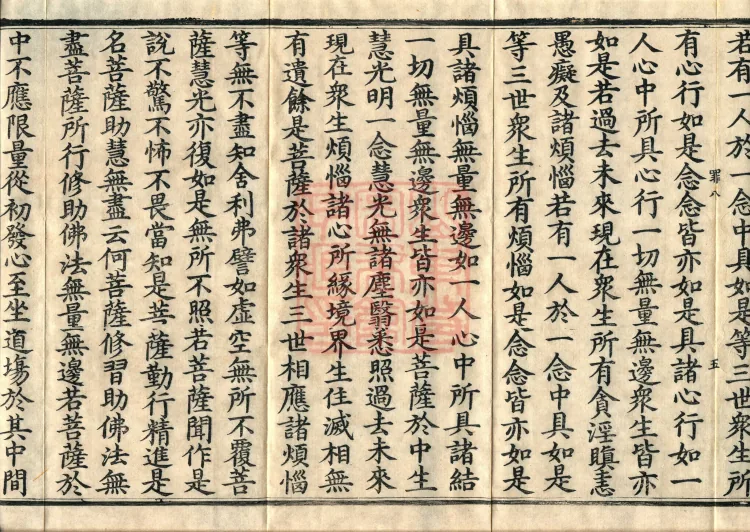 若有一人於一念中具如是等三世衆生所
有心行如是念念皆亦如是具諸心行如一
罪八
五
人心中所具心行一切無量無邊衆生皆亦
如是若過去未來現在衆生所有貪淫瞋恚
愚癡及諸煩惱若有一人於一念中具如是
等三世衆生所有煩惱如是念念皆亦如是
具諸煩惱無量無邊如一人心中所具諸結
一切無量無邊衆生皆亦如是菩薩於中生
慧光明一念慧光無諸塵翳悉照過去未來
現在衆生煩惱諸心所緣境界生住滅相無
有遺餘是菩薩於諸衆生三世相應諸煩惱
等無不盡知舍利弗譬如虛空無所不覆菩
薩慧光亦復如是無所不照若菩薩聞作是
說不驚不怖不畏當知是菩薩勤行精進是
名菩薩助慧無盡云何菩薩修習助佛法無
盡菩薩所行修助佛法無量無邊若菩薩於
中不應限量從初發心至坐道場於其中間